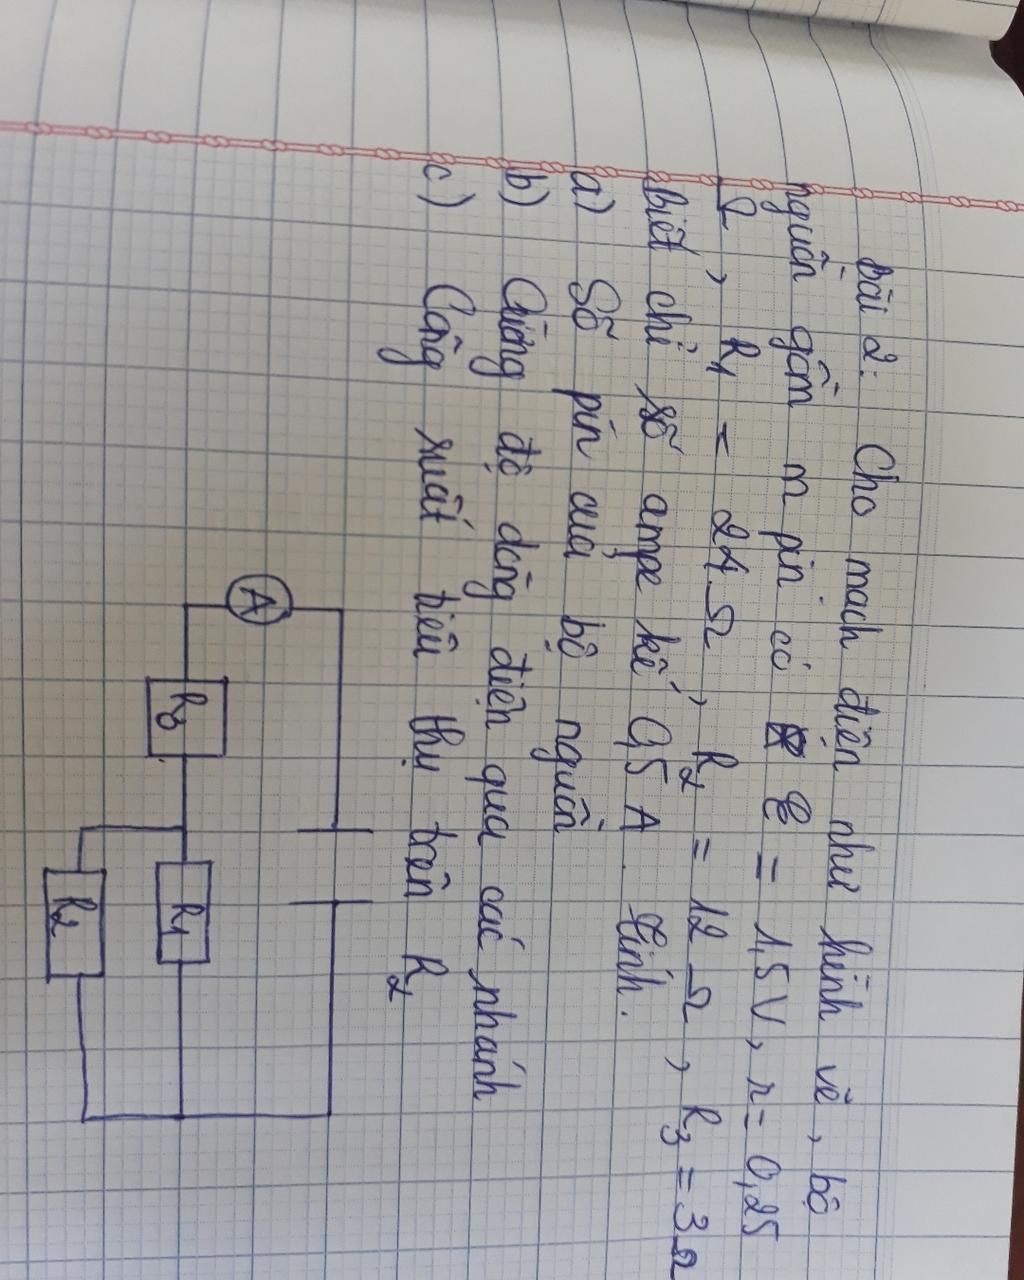 Bài 2: Cho mạch điện như hình vẽ, bộ
nguồn gồm n pin có E = 1,5V, r = 0,25
Ω, R1 = 24Ω, R2 = 12Ω, R3 = 3Ω
Biết chỉ số ampe kế 0,5A. Tính.
a) Số pin của bộ nguồn
b) Cường độ dòng điện qua các nhánh
c) Công suất tiêu thụ trên R2
A
R3
R1
R2